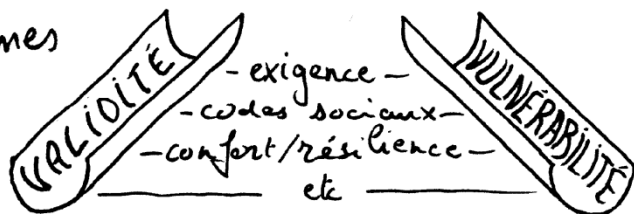 nes
VALIDITÉ
- exigence -
- codes sociaux -
- confort/résilience -
etc
VULNÉRABILITÉ